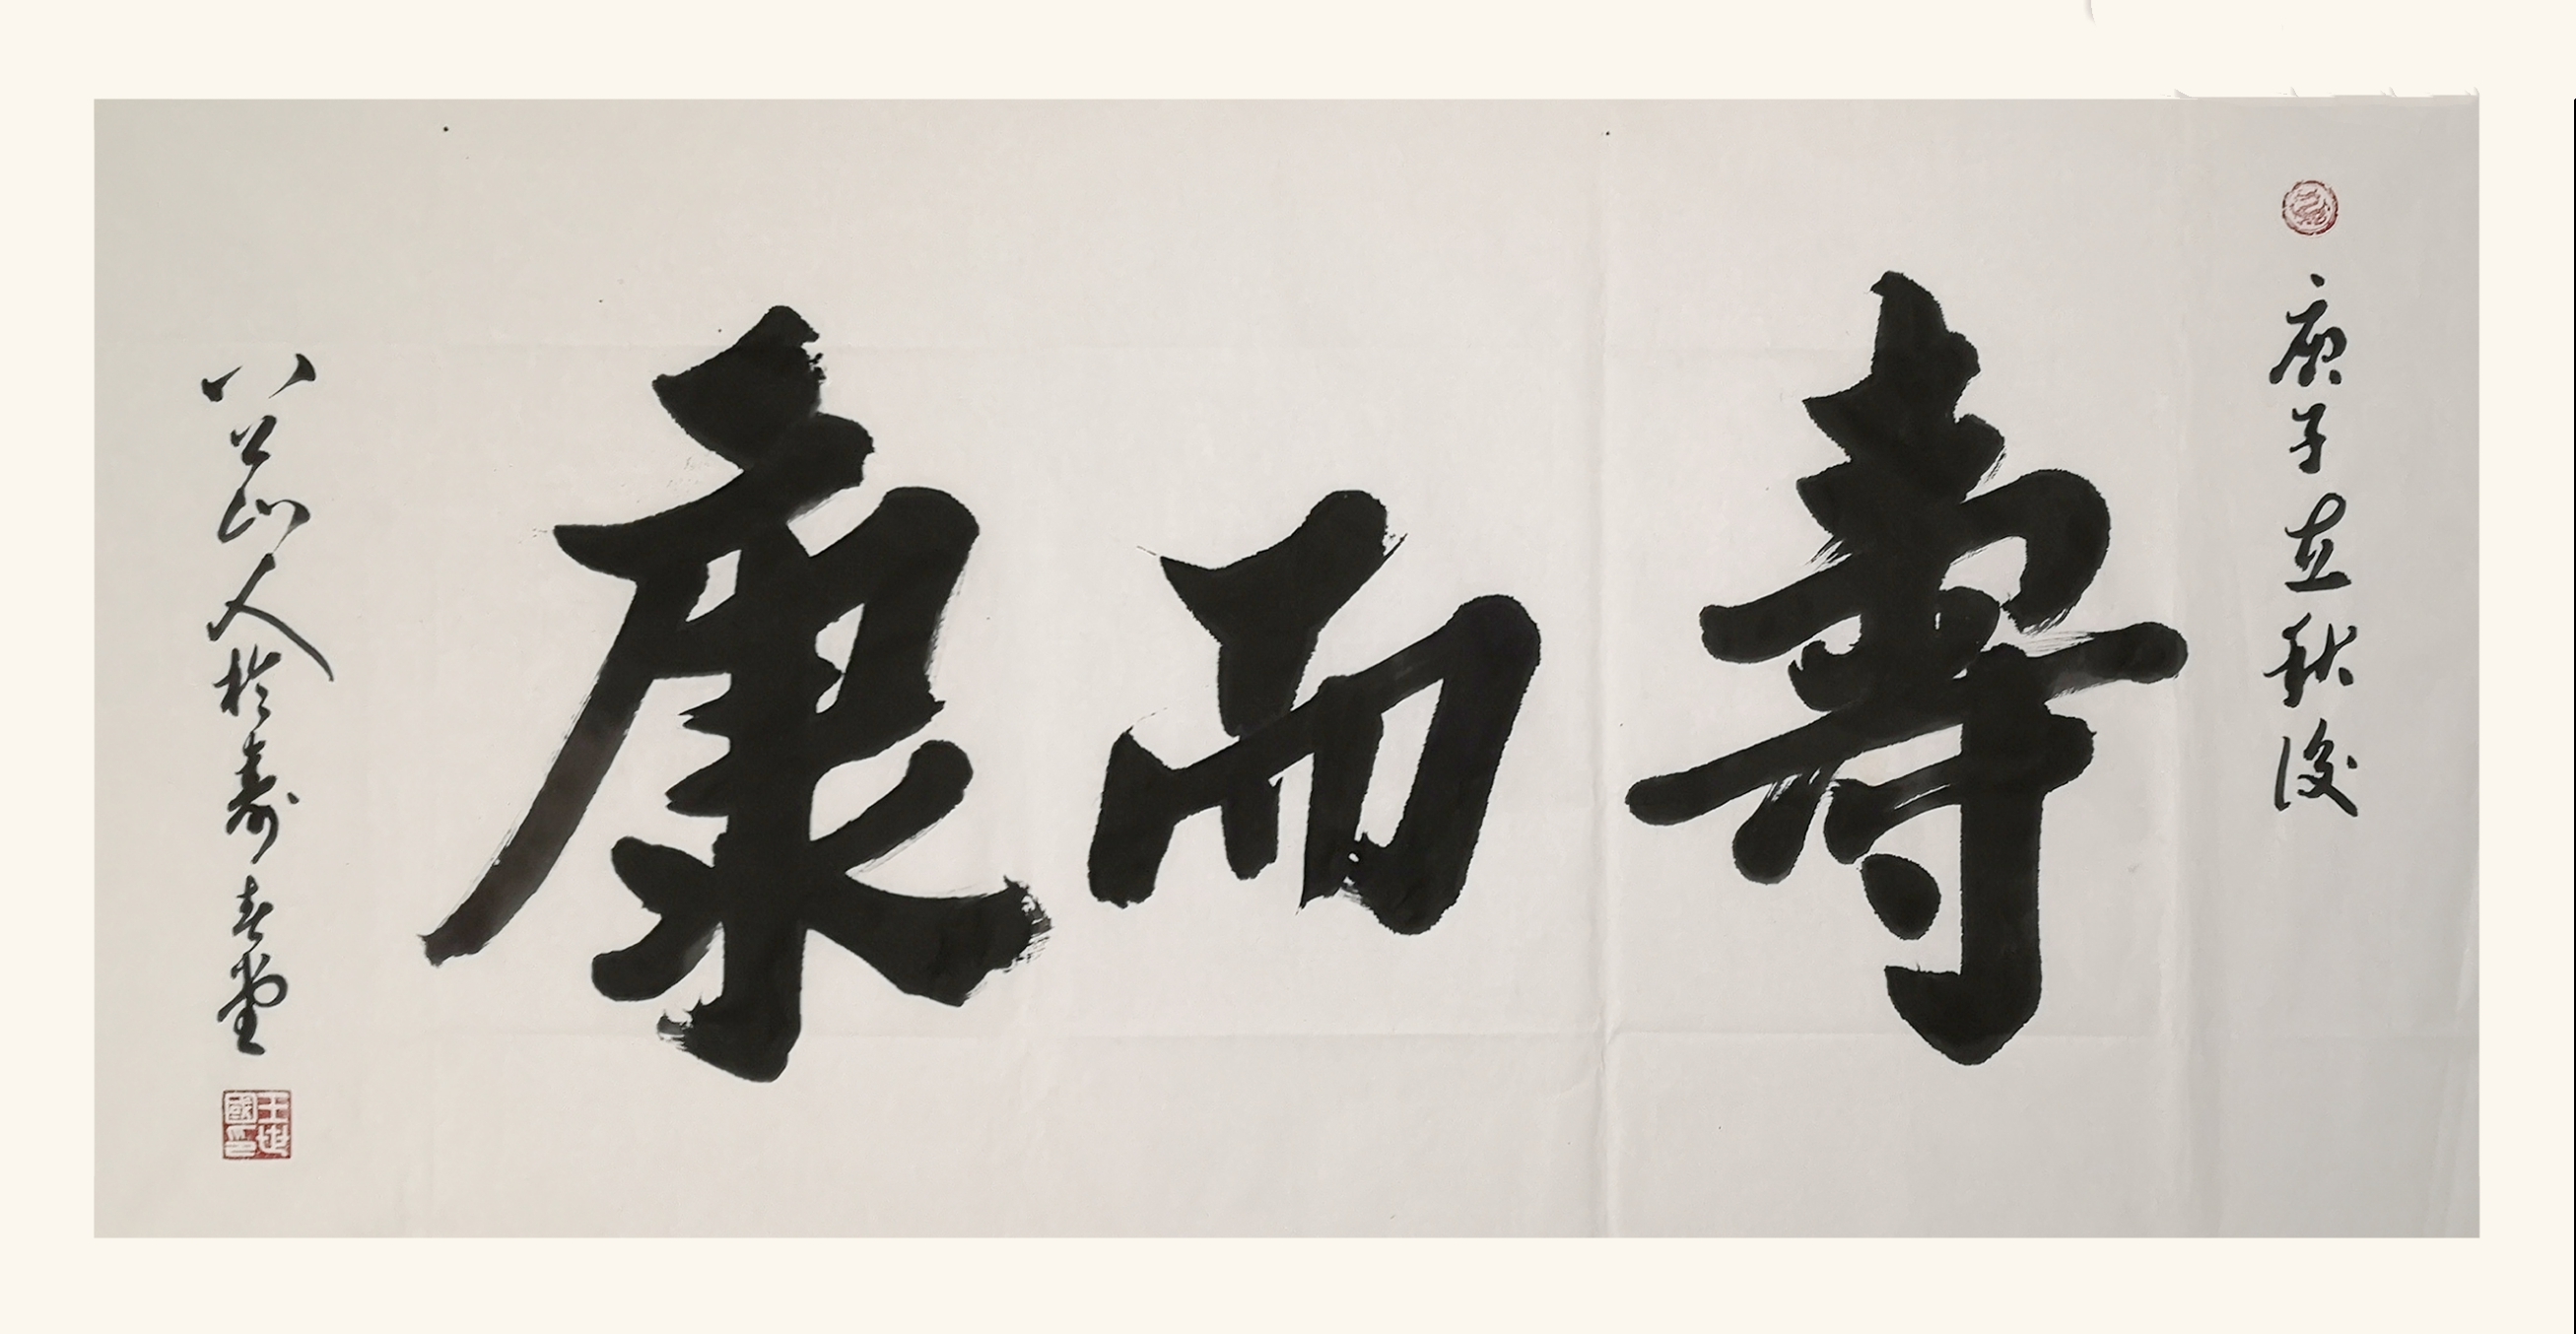 庚子立秋後
壽而康
八公山人於壽春堂
王世國印